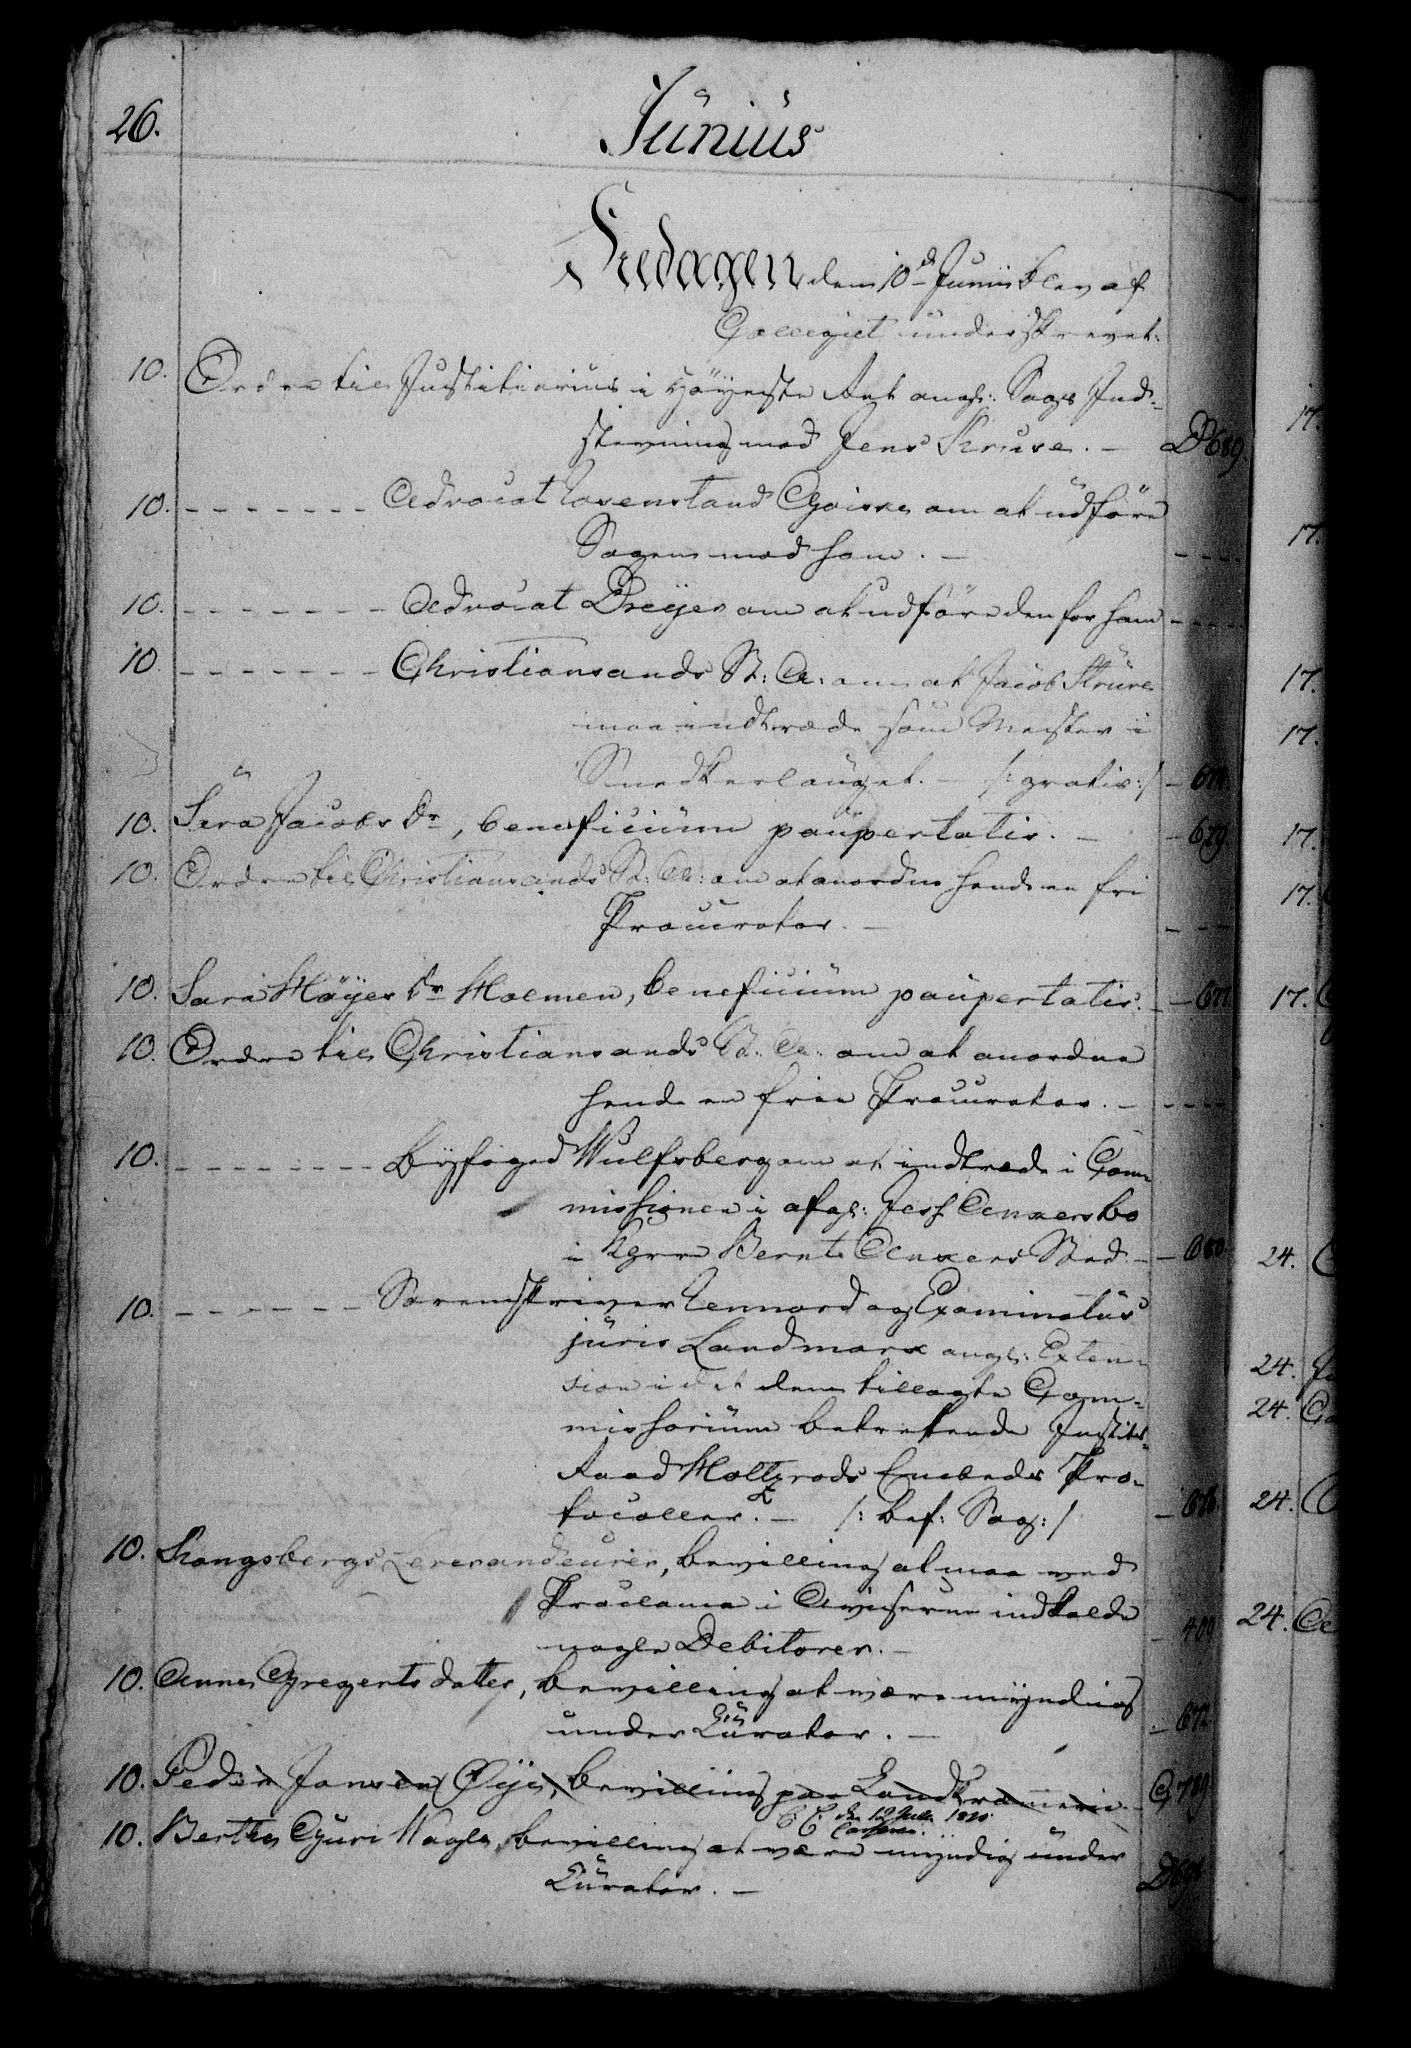 26.
Junius
Fredagen dem 10d Junii blev af
Collegiet underskrevet:
10. Ordre til Justitiarius i Höyeste Ret angl: Sags Ind-
stevning mod Jens Kruse. - D 689.
10. - - - - - - - Advocat Rosenstand Goiske om at udföre
Sagen mod ham. - - - - -
10. - - - - - - - Advocat Dreyer om at udföre den for ham - - - -
10 - - - - - - - Christiansands St: A: om at Jacob Strüve
maa indtræde som Mester i
Snedkerlauget. - /: gratis:/ -
10. Sira Jacobs Dr, beneficium paupertatis. - - 679
10. Ordre til Christiansands St: A: om at anordne hende en fri
Procurator. - - - -
10. Sara Höyer Dr Holmen, beneficium paupertatis. - - 677
10. Ordre til Christiansands St: A: om at anordne
hende en frie Procurator. - - - - -
10. - - - - - - - Byfoged Wulfsberg om at indtræde i Com-
missionen i afg: Jess Ankers bo
i Kgrr Bernt Ankers Sted. - - 680
10. - - - - - - Sorenskriver Lennord og Examinatus
juris Landmark angl: Exten-
sion i det dem tillagte Com-
missorium betreffende Justits-
Raad Holtzrods Embeds Pro-
tocoller. - /: bef: Sag:/ - 676
10. Kongsbergs Leverandeurer, bevilling at maa ved
Proclama i Aviserne indkalde
nogle Debitorer. - - 400
10. Anne Gregerts datter, bevilling at være myndig
under Curator. - - 672
10. Peder Jansen Öye, bevilling paa Landkrammerie. - G 789
10. Berthe Guri Nagle, bevilling at være myndig under
Curator. - D
17.
17.
17.
17.
17.
17.
17.
24.
24.
24.
24.
24.